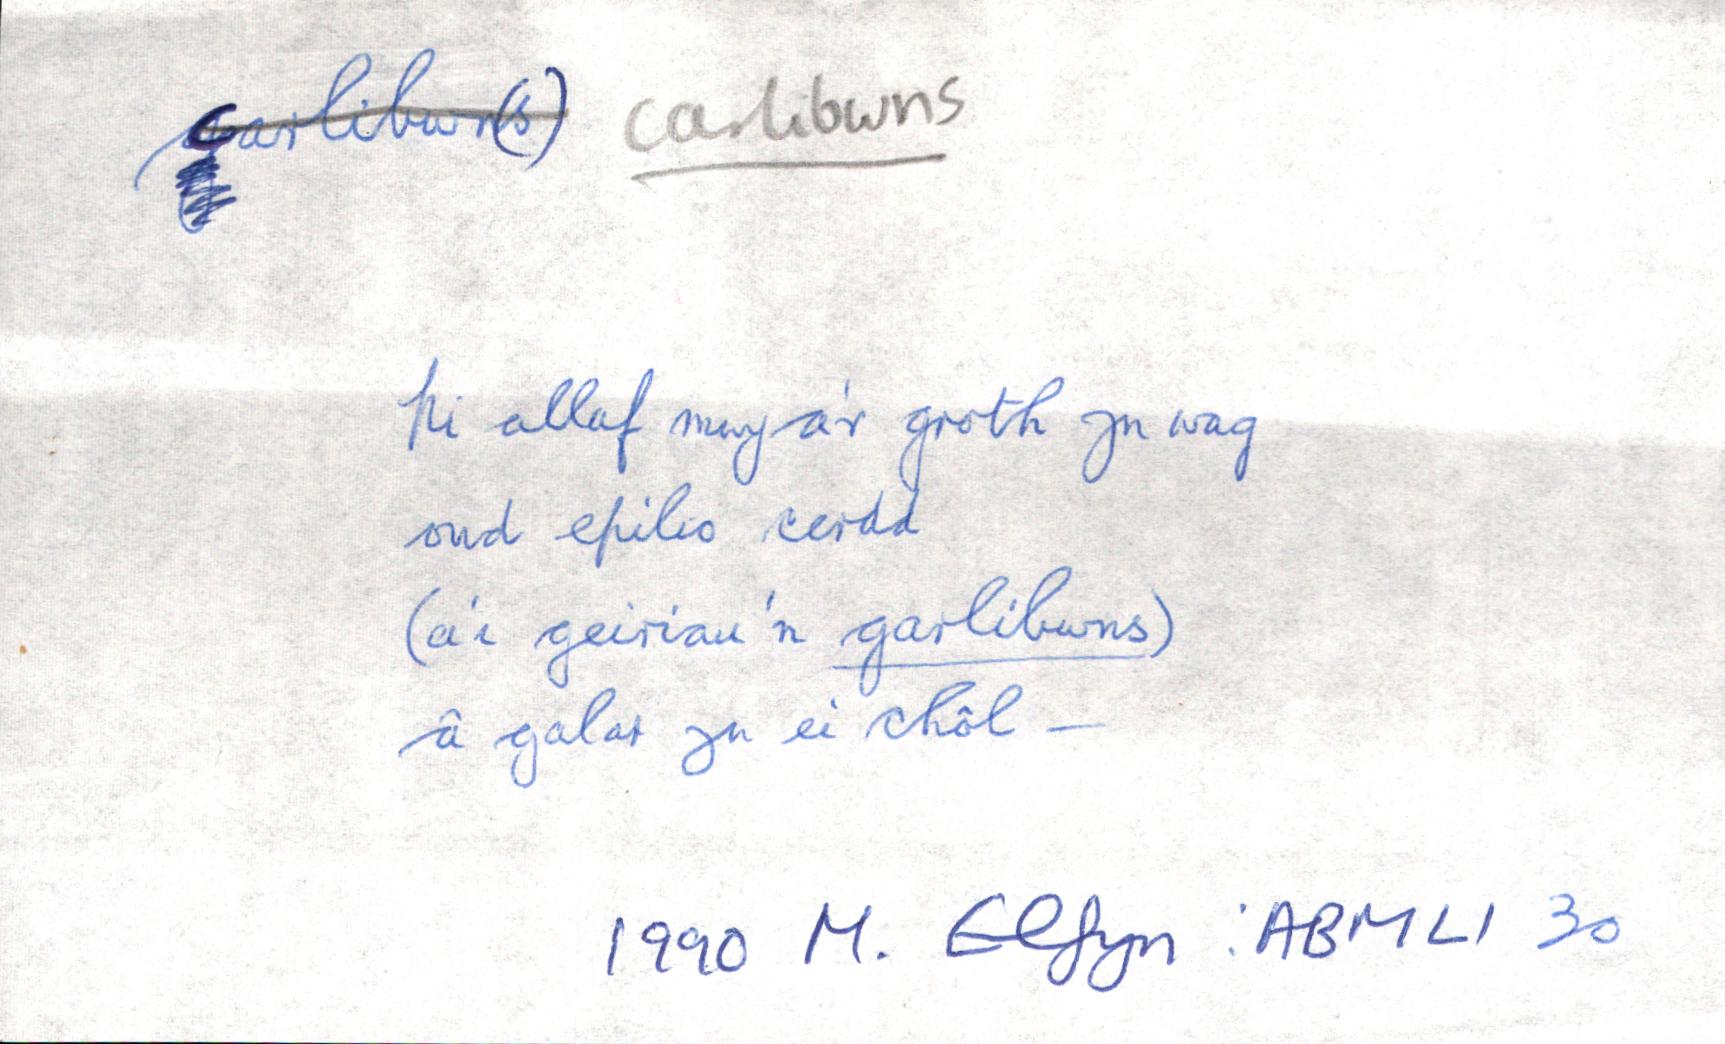 carlibwn(s) carlibwns
Ni allaf mwy a'r groth yn wag
ond epilio cerdd
(a'i geiriau'n garlibwns)
â galar yn ei chôl –
1990 M. Elfyn : ABMLl 30